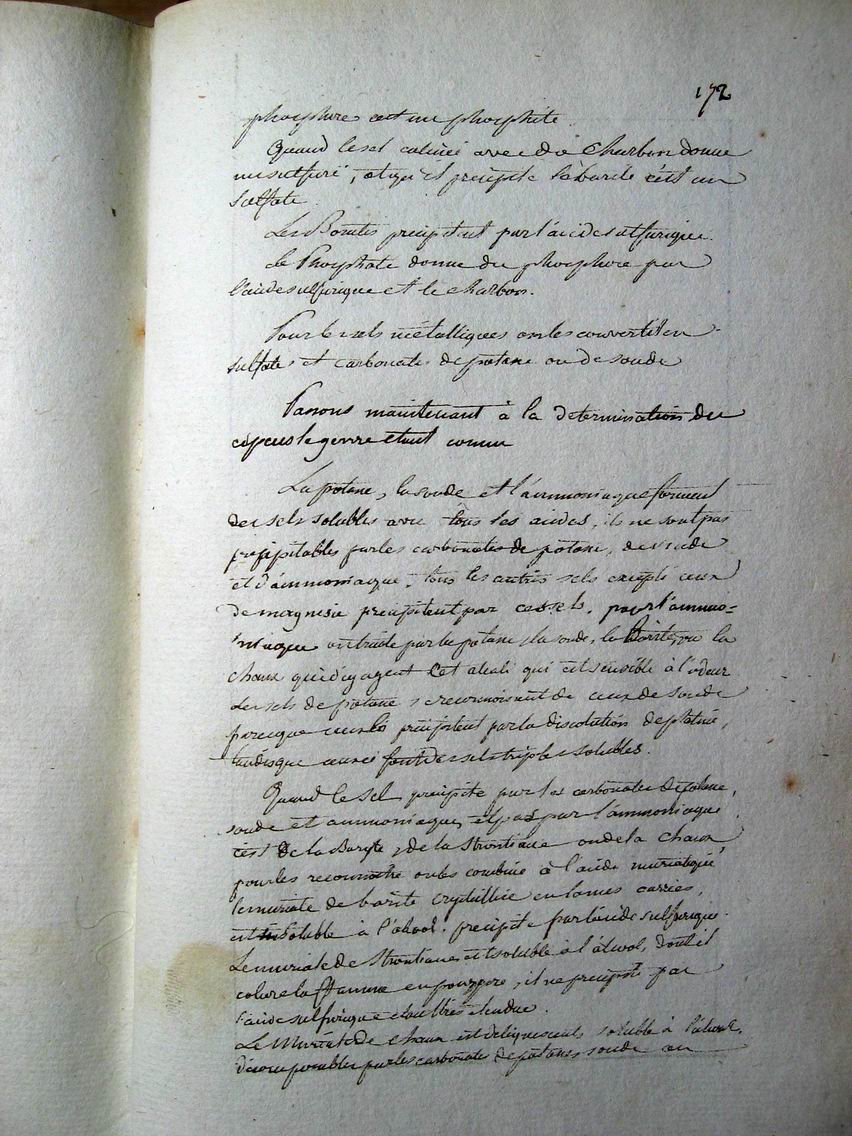 172
phosphore cest un phosphite.
Quand le sel calciné avec du charbon donne
un sulfure, et qu'il precipite la barite c'est un
sulfate.
Les Borates precipitent par l'acide sulfurique.
le Phosphate donne du phosphore par
l'acide sulfurique et le charbon.
Pour les sels métalliques on les convertit en
sulfate et carbonate de potasse ou de soude
Passons maintenant à la determination du
le genre etant connu
La potasse, la soude et l'ammoniaque forment
des sels solubles avec tous les acides, ils ne sont pas
précipitables par les carbonates de potasse, de soude
et d'ammoniaque. tous les autres sels excepté ceux
de magnesie precipitent par ces sels. pour l'ammo=
niaque on traite par la potasse, la soude, la Barite, ou la
chaux qui dégagent cet alcali qui est sensible à l'odeur
Les sels de potasse se reconnoissent de ceux de soude
parceque ceux là precipitent par la dissolution de platine,
tandisque ceux ci font des sels triples solubles.
Quand le sel precipite par les carbonates de potasse,
soude et ammoniaque, et pas par l'ammoniaque
c'est de la Baryte, de la Strontiane ou de la chaux,
pour les reconnoitre on les combine à l'acide muriatique,
le muriate de barite crystallise en lames carrées,
est insoluble à l'alcool. precipite par l'acide sulfurique.
Le muriate de Strontiane est soluble à l'alcool, dont il
colore la flamme en pourpre, il ne precipite pas
l'acide sulfurique etendue.
Le Muriate de chaux est deliquescent, soluble à l'alcool,
décomposables par les carbonate de potasse soude ou